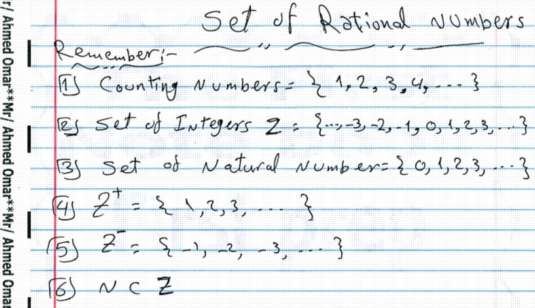 Set of Rational Numbers
Remember:-
[1] Counting Numbers = { 1, 2, 3, 4, ... }
[2] Set of Integers Z = {..., -3, -2, -1, 0, 1, 2, 3, ... }
[3] Set of Natural Number = { 0, 1, 2, 3, ... }
[4] Z⁺ = { 1, 2, 3, .... }
[5] Z⁻ = { -1, -2, -3, .... }
[6] N ⊂ Z
r/ Ahmed Omar**Mr/ Ahmed Omar**Mr/ Ahmed Omar**Mr/ Ahmed Omar